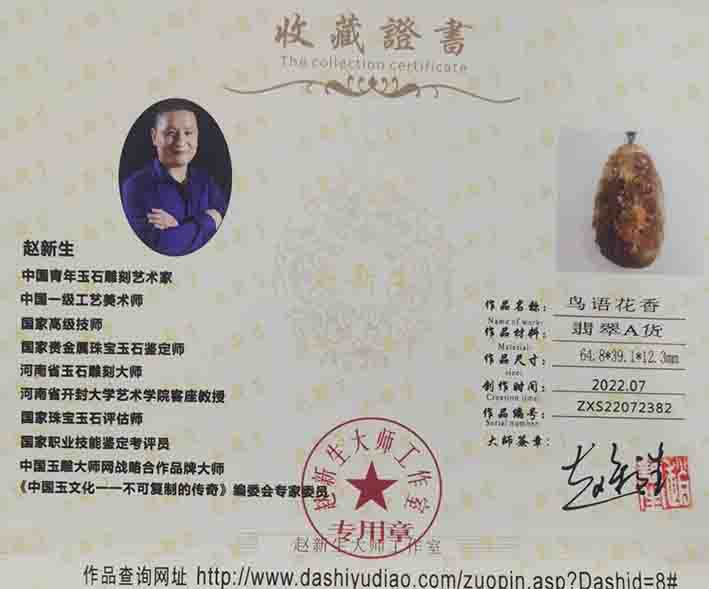 收藏證書
The collection certificate
赵新生
中国青年玉石雕刻艺术家
中国一级工艺美术师
国家高级技师
国家贵金属珠宝玉石鉴定师
河南省玉石雕刻大师
河南省开封大学艺术学院客座教授
国家珠宝玉石评估师
国家职业技能鉴定考评员
中国玉雕大师网战略合作品牌大师
《中国玉文化——不可复制的传奇》编委会专家委员
作品名称: 鸟语花香
Name of work:
作品材料: 翡翠A货
Material:
作品尺寸: 64.8*39.1*12.3mm
size:
创作时间: 2022.07
Creation time:
作品编号: ZXS22072382
Serial number:
大师签章:
赵新生大师工作室
专用章
赵新生大师工作室
作品查询网址 http://www.dashiyudiao.com/zuopin.asp?Dashid=8#